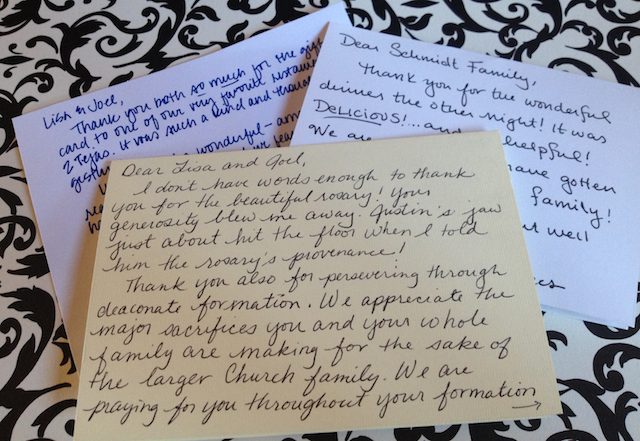 Lisa & Joel,
Thank you both so much for the gift
card to one of our very favorite restaurants
2 Tejas. It was such a kind and
wonderful – 
Dear Schmidt Family,
Thank you for the wonderful
dinner the other night! It was
DELICIOUS!...and helpful!
We are
have gotten
family!
well
Dear Lisa and Joel,
I don't have words enough to thank
you for the beautiful rosary! Your
generosity blew me away. Justin's jaw
just about hit the floor when I told
him the rosary's provenance!
Thank you also for persevering through
deaconate formation. We appreciate the
major sacrifices you and your whole
family are making for the sake of
the larger Church family. We are
praying for you throughout your formation
→